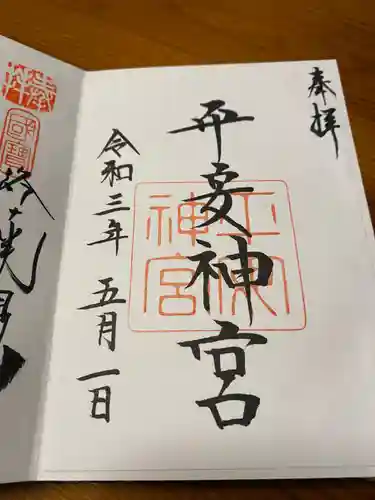 奉拝
平安神宮
平安神宮
令和三年 五月一日
國寶